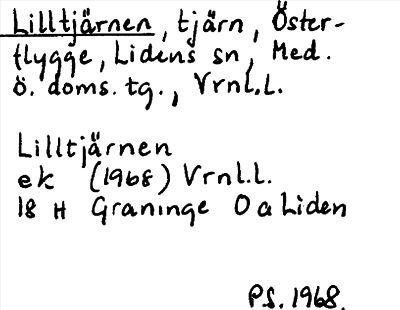 Lilltjärnen, tjärn, Öster-
flygge, Lidens sn, Med.
ö. doms. tg., Vrnl.L.
Lilltjärnen
ek (1968) Vrnl.L.
18 H Graninge O a Liden
P.S. 1968.